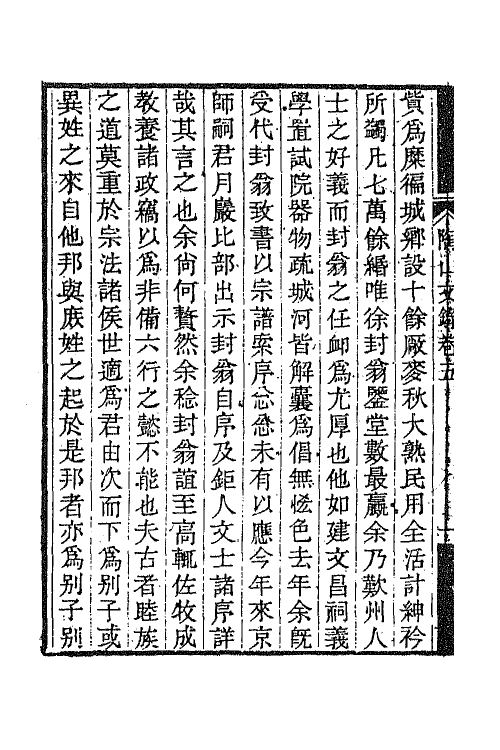 貲爲糜徧城鄉設十餘厰麥秋大熟民用全活計紳衿
所蠲凡七萬餘緡唯徐封翁鑒堂數最贏余乃歎州人
士之好義而封翁之任卹爲尤厚也他如建文昌祠義
學置試院器物疏城河皆解囊爲倡無恡色去年余旣
受代封翁致書以宗譜案序忩忩未有以應今年來京
師嗣君月巖比部出示封翁自序及鉅人文士諸序詳
哉其言之也余尙何贅然余稔封翁誼至高輒佐牧成
敎養諸政竊以爲非備六行之懿不能也夫古者睦族
之道莫重於宗法諸侯世適爲君由次而下爲别子或
異姓之來自他邦與庻姓之起於是邦者亦爲别子别
文錄卷五